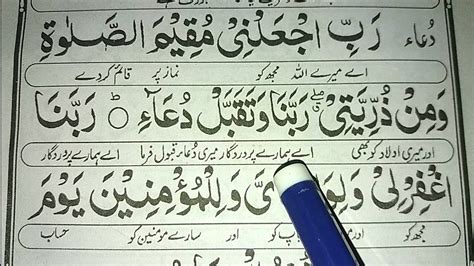 دُعاء رَبِّ اجْعَلْنِیْ مُقِیْمَ الصَّلٰوةِ
اے میرے اللہ مجھ کو نماز پر قائم کر دے
وَمِنْ ذُرِّیَّتِیْ ۖ رَبَّنَا وَتَقَبَّلْ دُعَآءِ ۝ رَبَّنَا
اور میری اولاد کو بھی اے ہمارے پروردگار میری دُعاء قبول فرما اے ہمارے پروردگار
اغْفِرْلِیْ وَلِلْمُؤْمِنِیْنَ یَوْمَ
مجھ کو کو اور سارے مومنین کو حساب